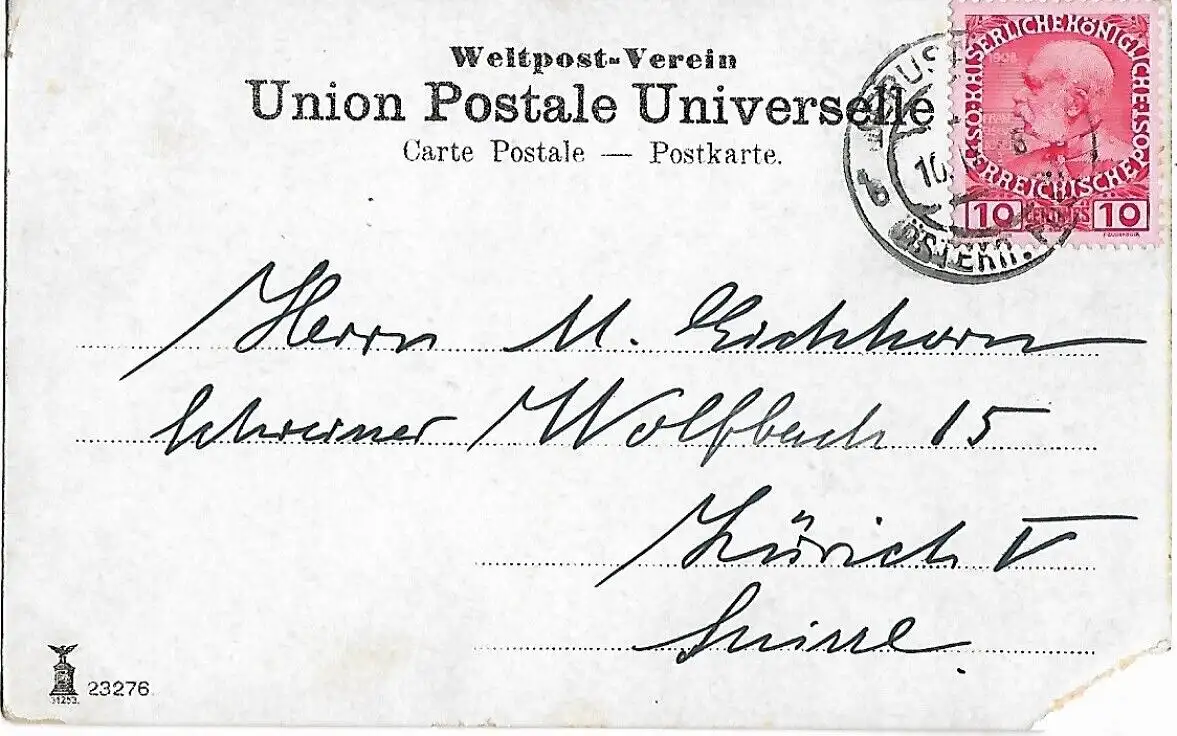 Weltpost-Verein
Union Postale Universelle
Carte Postale — Postkarte.
KAISERLICHEKÖNIGLICHE
ÖSTERREICHISCHEPOST
1908
10 10
ÖSTERR. P
Herrn M. Eichhorn
Wolfbach 15
Zürich V
Suisse.
23276